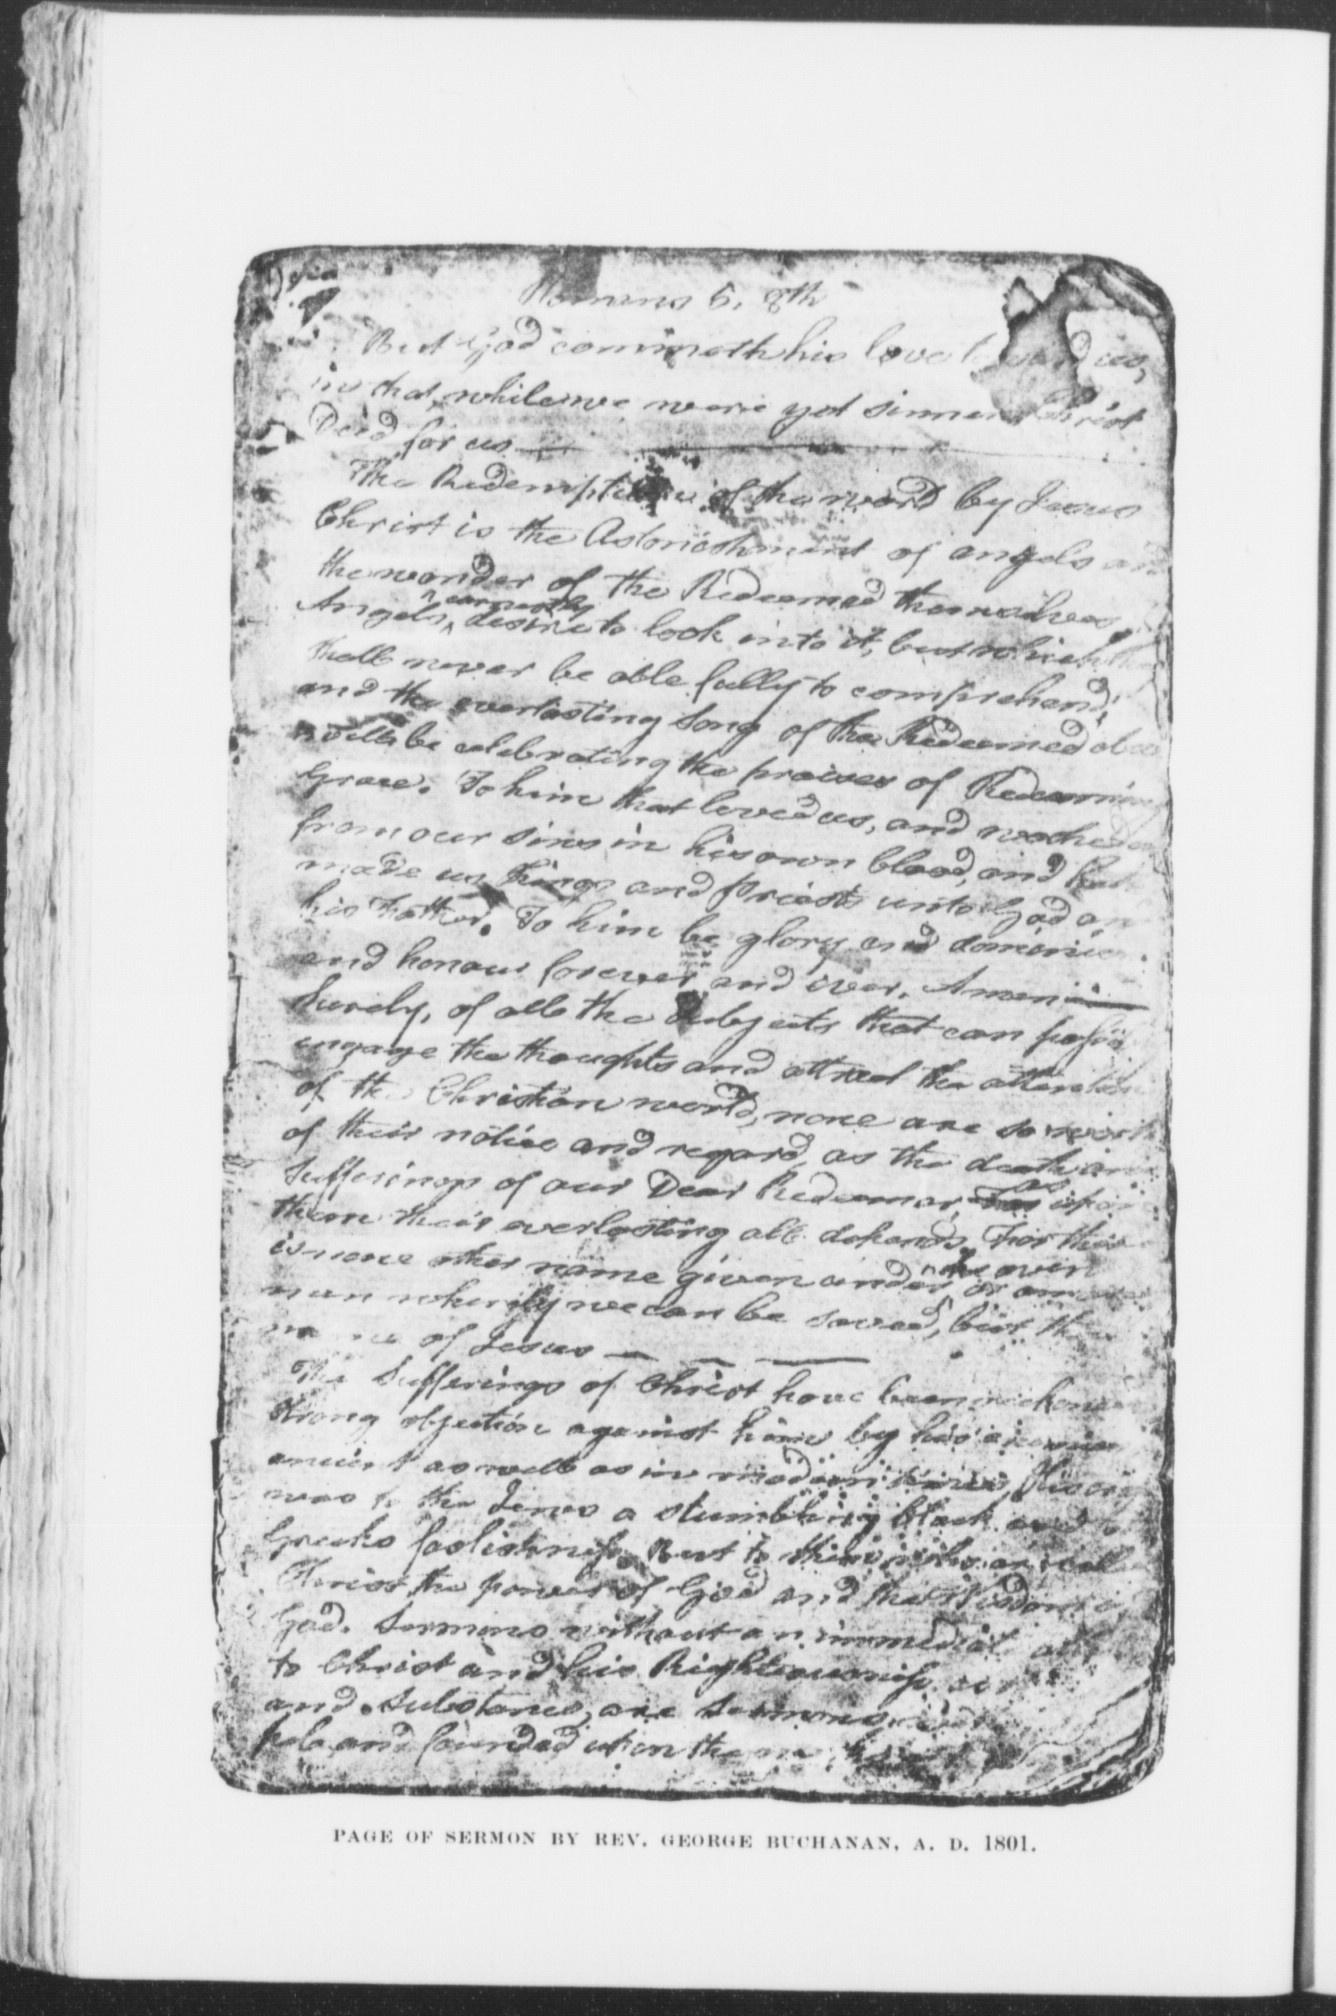 Romans 5, 8th
But God commeth his love toward us,
in that, while we were yet sinners Christ
Deid for us
The Redemption of the world by Jesus
Christ is the Astonishment of angels and
the wonder of the Redeemed themselves
Angels earnestly desire to look into it, but which
shall never be able fully to comprehend;
and the everlasting Song of the Redeemed above
will be celebrating the praises of Redeeming
Grace. To him that loved us, and washed us
from our sins in his own blood, and hath
made us Kings and priests unto God and
his Father. To him be glory and dominion
and honour forever and ever. Amen
Surely, of all the Subjects that can possibly
engage the thoughts and attract the attention
of the Christian world, none are so worthy
of their notice and regard, as the death and
Sufferings of our Dear Redeemer, as upon
them their everlasting all depends, For there
is none other name given under heaven or among
men whereby we can be saved, but the
name of Jesus
The Sufferings of Christ have been
strong objection against him by his enemies
ancient as well as in modern times
was to the Jews a stumbling block and
Greeks foolishness But to them who are call
Christ the power of God and the Wisdom of
God. Sermons without an immediat
to Christ and his Righteousness
and Substance, are Sermons
and founded upon
PAGE OF SERMON BY REV. GEORGE BUCHANAN, A. D. 1801.